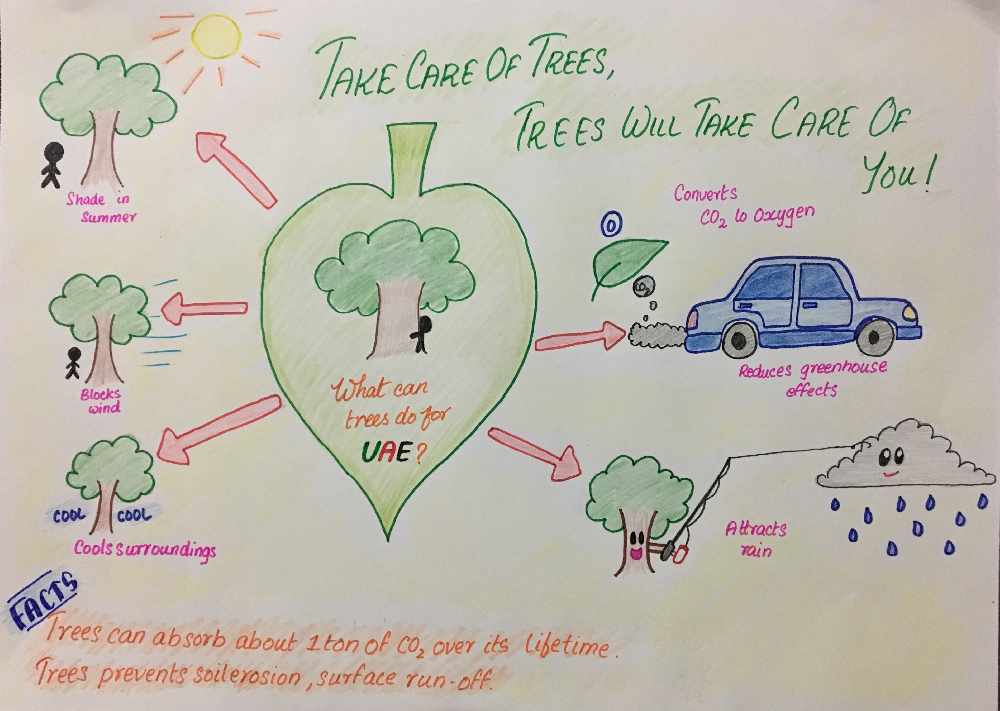 TAKE CARE OF TREES,
TREES WILL TAKE CARE OF
YOU!
Shade in
Summer
Blocks
wind
COOL COOL
Cools surroundings
What can
trees do for
UAE?
Converts
CO₂ to Oxygen
O
CO₂
Reduces greenhouse
effects
Attracts
rain
FACTS
Trees can absorb about 1 ton of CO₂ over its lifetime.
Trees prevents soil erosion, surface run-off.